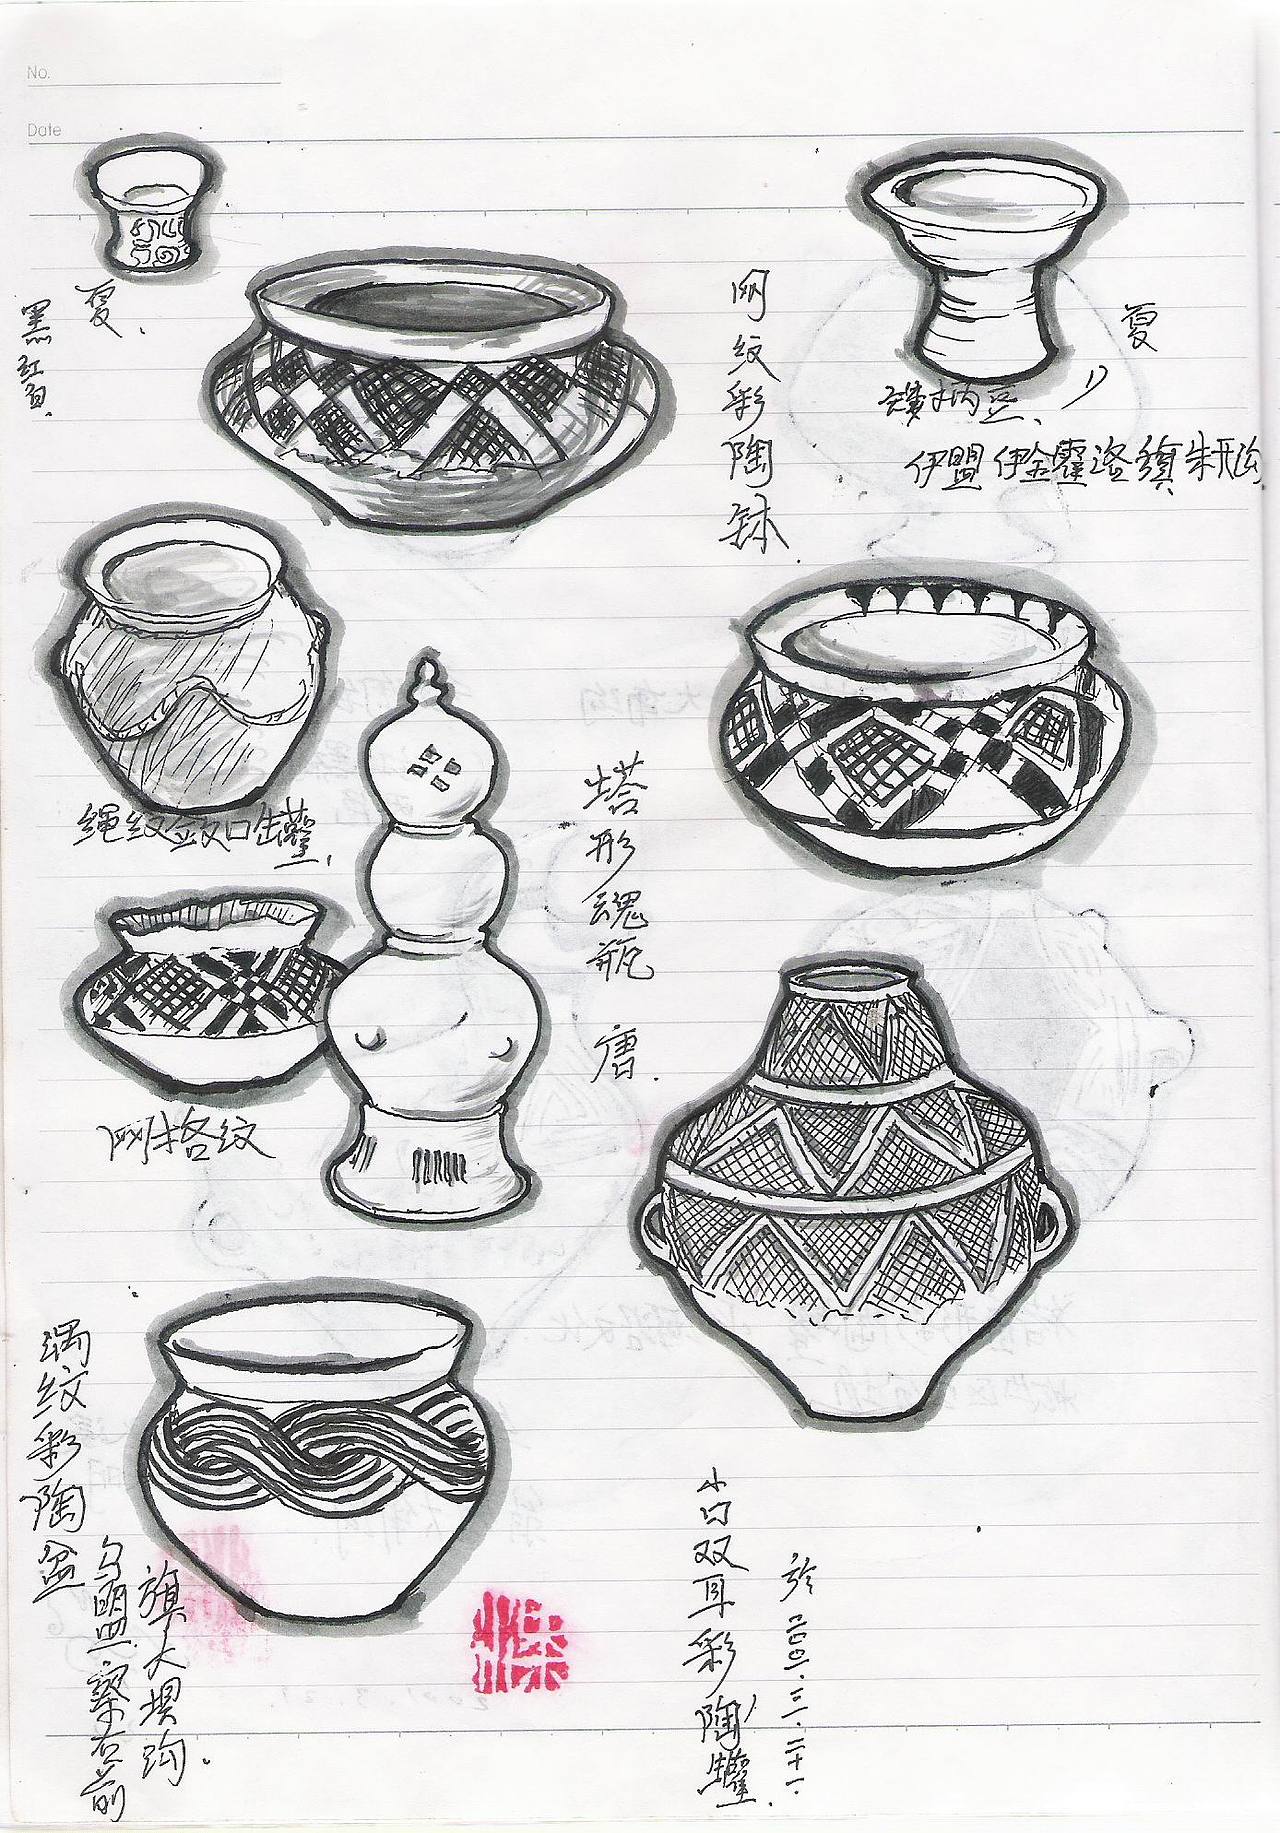 No.
Date
夏.
黑红白.
网纹彩陶钵.
夏
柄豆.
伊盟伊金霍洛旗朱开沟
绳纹敛口罐.
塔形魂瓶 唐.
网格纹
绳纹彩陶盆
乌盟察右前
旗大坝沟.
小口双耳彩陶罐.
於二〇〇一.三.二十一.